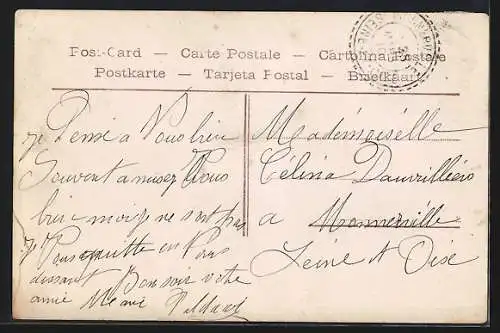 Post-Card — Carte Postale — Cartolina Postale
Postkarte — Tarjeta Postal — Briefkaart
Je Pense a Vous bien
Souvent amusez Vous
bien moi je ne sort pas
Je Vous quitte en Vous
dissant Bonsoir votre
amie Marie
Mademoiselle
Célina Dauvilliers
a Monnerville
Seine et Oise